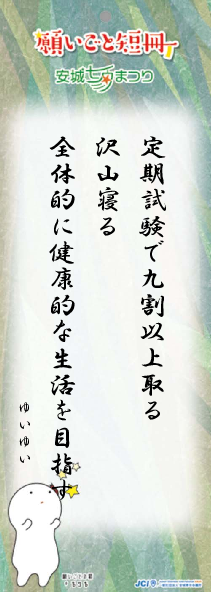 願いごと短冊
安城七夕まつり
定期試験で九割以上取る
沢山寝る
全体的に健康的な生活を目指す
ゆいゆい
JCI